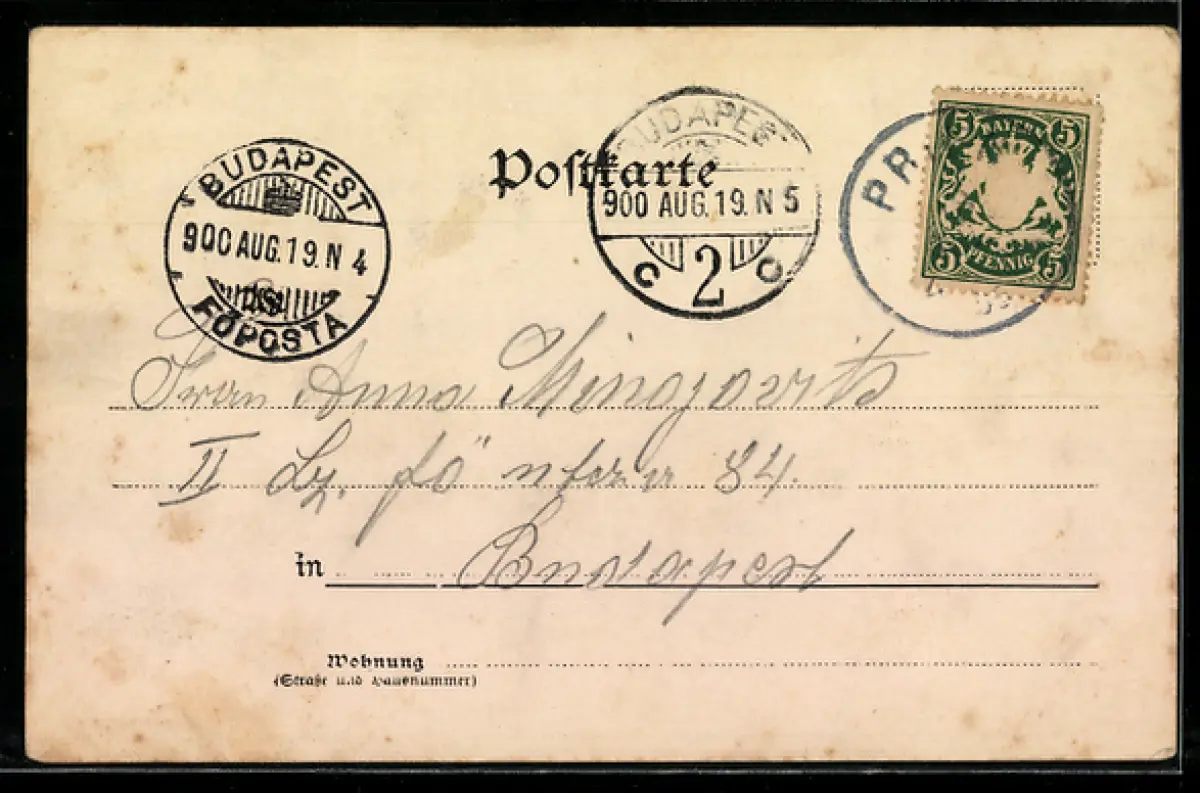 BUDAPEST
900 AUG.19.N 4
FŐPOSTA
Postkarte
BUDAPEST
900 AUG.19.N 5
C 2 C
PR
5 BAYERN 5
5 PFENNIG 5
Frau Anna
II fő utcza 84.
in Budapest
Wohnung
(Straße und Hausnummer)